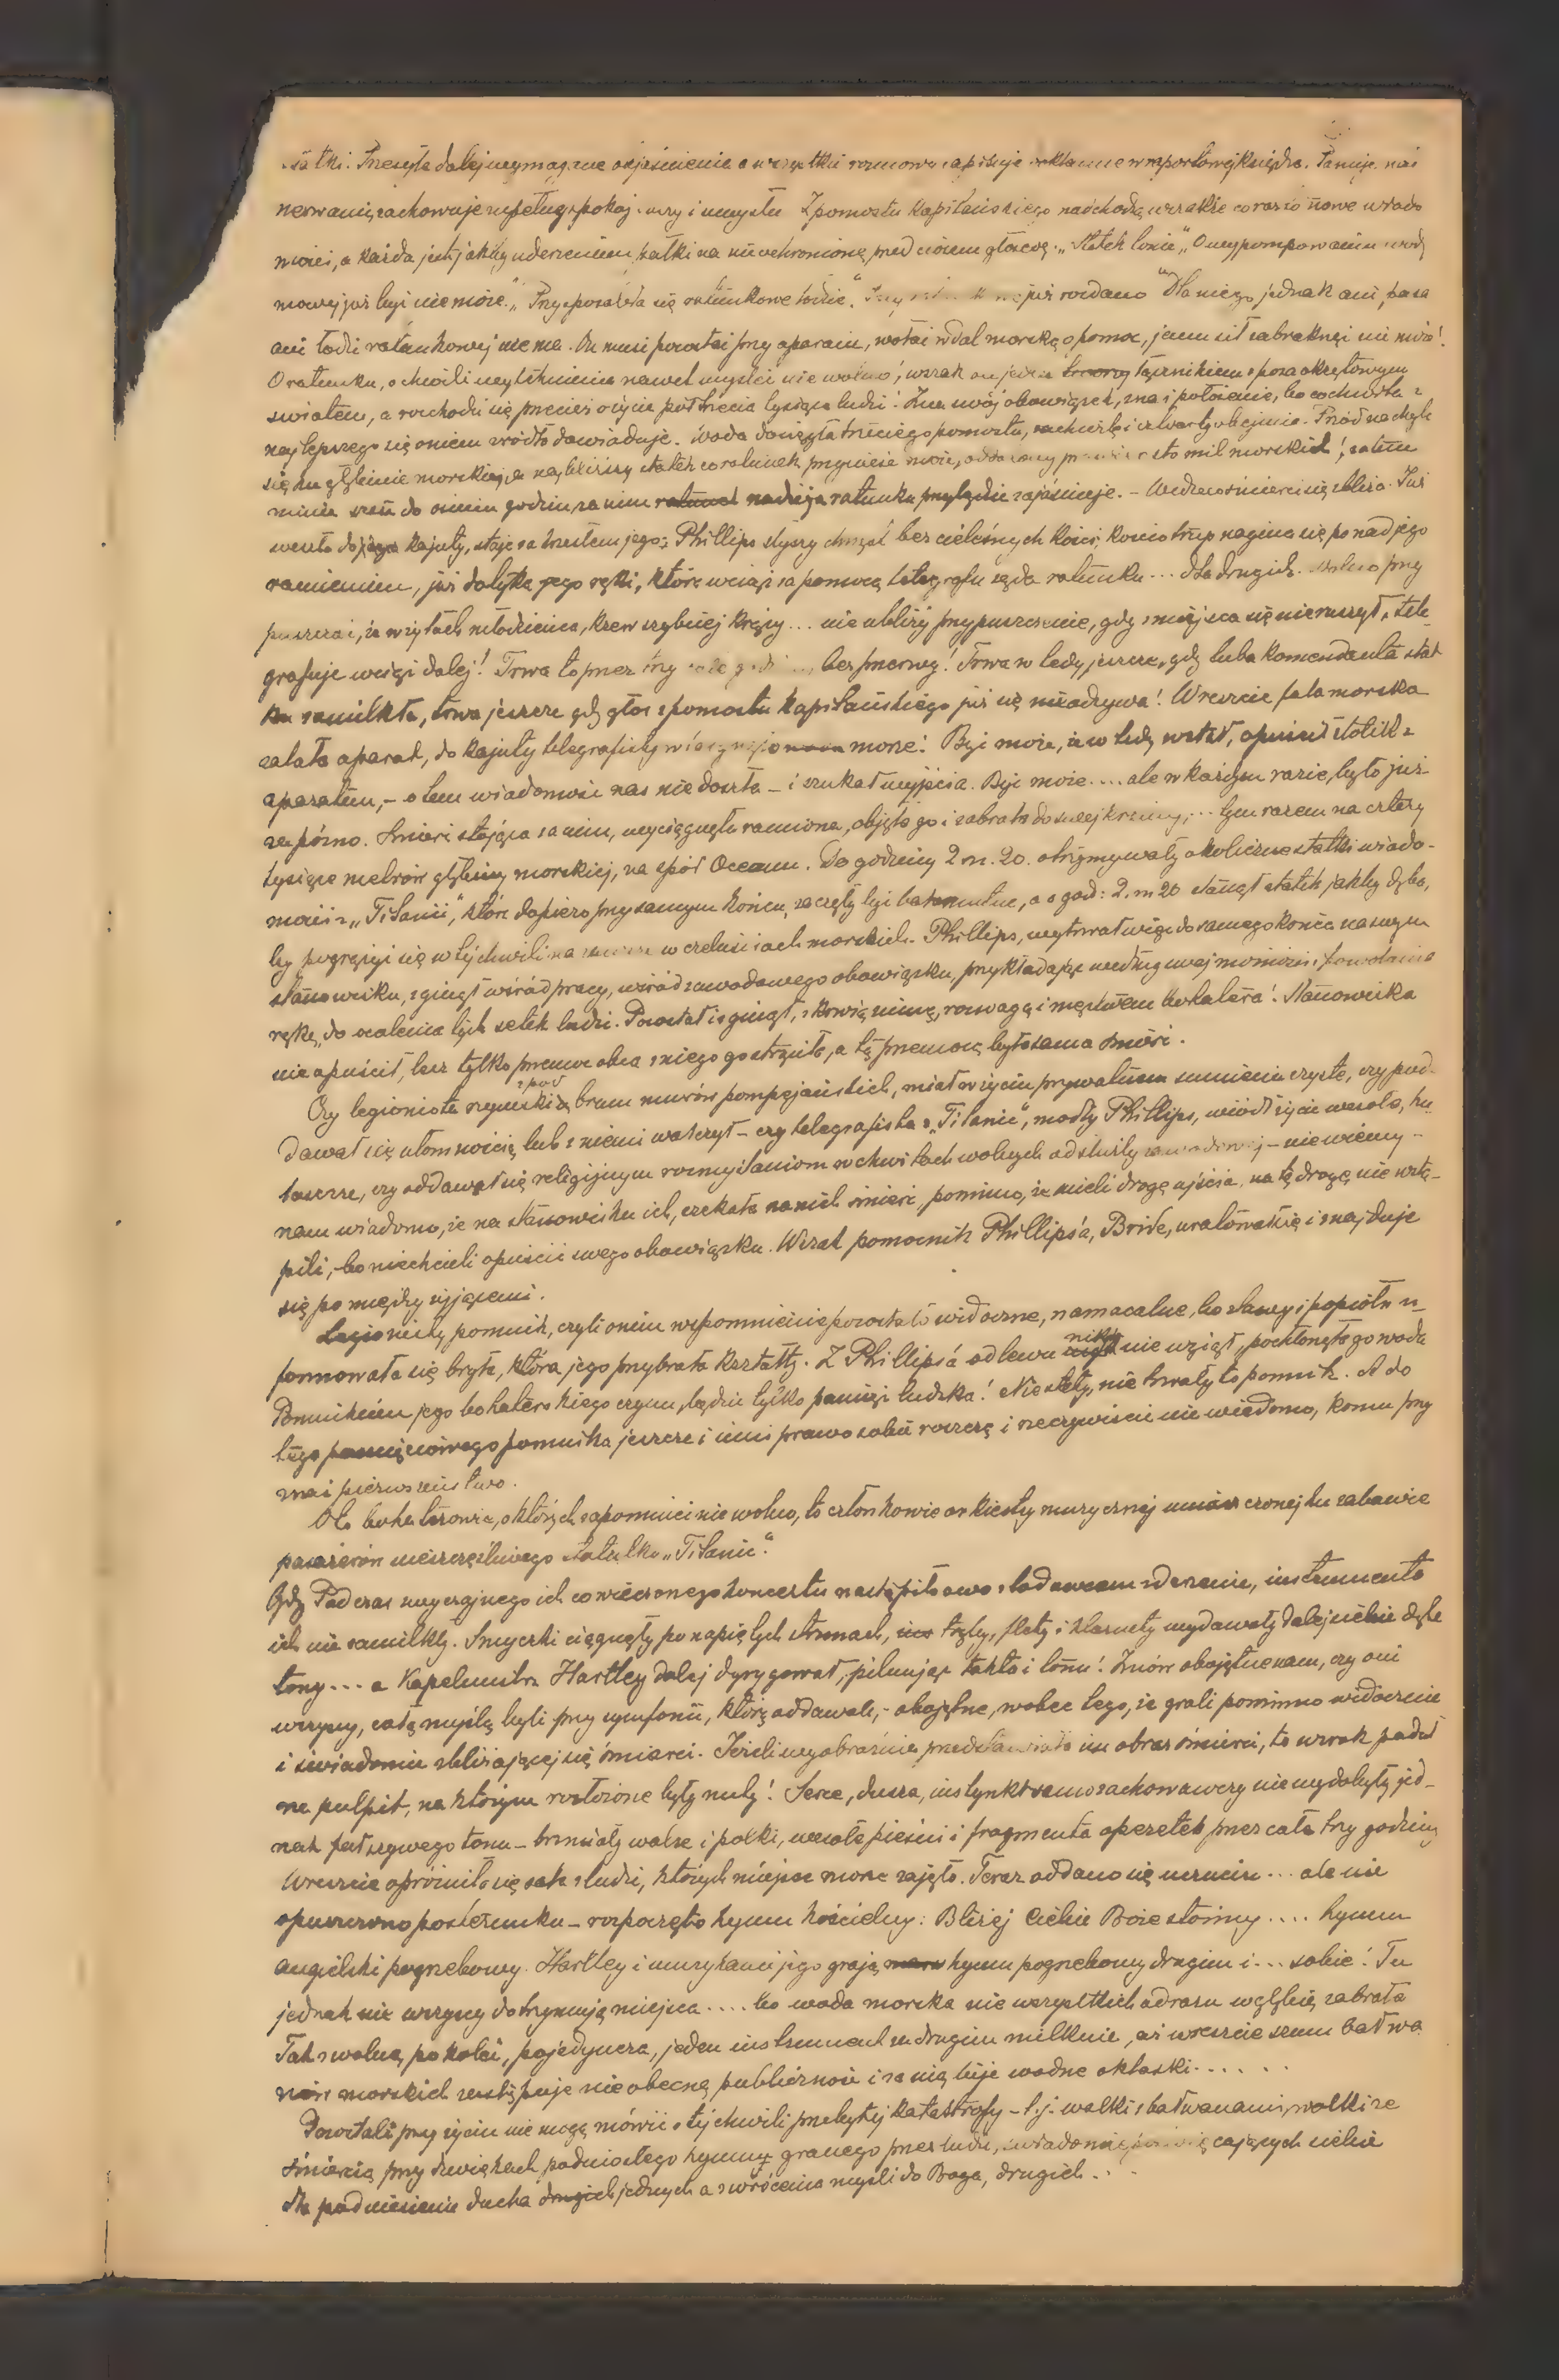 statki. Przesyła dalej wymagane objaśnienie a wszystkie rozmowy zapisuje dokładnie w raportowej księdze. Panuje nad
nerwami, zachowuje zupełny spokój duszy i umysłu. Z pomostu kapitańskiego nadchodzą wszakże coraz to nowe wiado
mości, a każda jest jakby uderzeniem pałki na nieochronioną przed ciosem głowę. „Statek tonie”, „O wypompowaniu wody
mowy już być nie może.” „Przysposabia się ratunkowe łodzie.” już rozdano” Dla niego jednak ani pasa
ani łodzi ratunkowej nie ma. On musi pozostać przy aparacie, wołać w dal morską o pomoc, jemu sił zabraknąć nie może!
O ratunku, o chwili wytchnienia nawet myśleć nie wolno; wszak on jeden łącznikiem z poza okrętowym
światem, a rozchodzi się przecież o życie półtrzecia tysiąca ludzi! Zna swój obowiązek, zna i położenie, bo co chwila z
najlepszego się o niem źródła dowiaduje. Woda dosięgła trzeciego pomostu, za chwilę i czwarty obejmie. Przód nachyla
się ku głębinie morskiej, a najbliższy statek co ratunek przynieść może, oddalony sto mil morskich; zatem
minie sześć do ośmiu godzin zanim nadzieja ratunku przybędzie zajaśnieje. – Wtedy śmierć się zbliża. Już
weszła do kajuty, staje za krzesłem jego; Phillips słyszy chrzęst bezcieleśnych kości; kościotrup nagina się ponad jego
ramieniem, już dotyka jego ręki, która wciąż za pomocą telegrafu żąda ratunku... dla drugich. Wolno przy
puszczać, że w żyłach młodzieńca, krew szybciej krąży... nie ubliży przypuszczenie, gdy z miejsca się nie ruszył, tele
grafuje wciąż dalej! Trwa to przez trzy całe godziny, bez przerwy! Trwa wtedy jeszcze, gdy tuba komendanta stat
ku zamilkła, trwa jeszcze gdy głos z pomostu kapitańskiego już się nie odzywa! Wreszcie fala morska
zalała aparat, do kajuty telegrafisty morze! Być może, że wtedy wstał, opuścił stolik z
aparatem, – o tem wiadomość nas nie doszła – i szukał wyjścia. Być może.... ale w każdym razie, było już
za późno. Śmierć stojąca za nim, wyciągnęła ramiona, objęła go i zabrała do swej krainy,... tym razem na cztery
tysiące metrów głębiny morskiej, na spód Oceanu. Do godziny 2 m. 20. otrzymywały okoliczne statki wiado-
mości z „Titanic”, które dopiero przy samym końcu, zaczęły być bałamutne, a o god: 2. m. 20 stanął statek jakby dęba,
by pogrążyć się w tej chwili na w czeluściach morskich. Phillips, wytrwał więc do samego końca na swym
stanowisku, zginął wśród pracy, wśród zawodowego obowiązku, przykładając według swej możności i powołania
rękę, do ocalenia tych setek ludzi. Pozostał i zginął, z krwią zimną, rozwagą i męstwem bohatera! Stanowiska
nie opuścił, lecz tylko przemoc obca z niego go strąciła, a tą przemocą była sama śmierć.
Czy legionista rzymski z pod bram murów pompejańskich, miał w życiu prywatnem sumienie czyste, czy pod-
dawał się ułomnością lub z niemi walczył – czy telegrafista z „Titanic”, młody Phillips, wiódł życie wesołe, hu
laszcze, czy oddawał się religijnym rozmyślaniom w chwilach wolnych od służby zawodowej – nie wiemy –
nam wiadomo, że na stanowisku ich, czekała na nich śmierć, pomimo, że mieli drogę ujścia, na tę drogę nie wstą-
pili, – bo nie chcieli opuścić swego obowiązku. Wszak pomocnik Phillips'a, Bride, uratował się i znajduje
się pomiędzy żyjącemi.
Legionisty pomnik, czyli o nim wspomnienie pozostało widoczne, namacalne, bo z lawy i popiołu u-
formowała się bryła, która jego przybrała kształty. Z Phillips'a odlewu nikt nie wziął, pochłonęła go woda
Pomnikiem jego bohaterskiego czynu, będzie tylko pamięć ludzka! Niestety, nie trwały to pomnik. A do
tego pamięciowego pomnika jeszcze i inni prawo sobie roszczą i rzeczywiście nie wiadomo, komu przy
znać pierwszeństwo.
Oto bohaterowie, o których zapomnieć nie wolno, to członkowie orkiestry muzycznej umieszczonej ku zabawie
pasażerów nieszczęśliwego statku „Titanic”.
Gdy Podczas zwyczajnego ich cowieczornego koncertu nastąpiło owo z lodowcem zderzenie, instrumenta
ich nie zamilkły. Smyczki ciągnęły po napiętych strunach, trąby, flety i klarnety wydawały dalej ciche dęte
tony... a Kapelmistrz Hartley dalej dyrygował, pilnując taktu i tonu! Znów obojętne nam, czy oni
wszyscy, całą myślą byli przy symfonii, którą oddawali, – obojętne, wobec tego, że grali pomimo widocznie
i świadomie zbliżającej się śmierci. Jeżeli wyobraźnia przedstawiała im obraz śmierci, to wzrok padał
na pulpit, na którym rozłożone były nuty! Serce, dusza, instynkt samozachowawczy nie wydobyły jed-
nak fałszywego tonu – brzmiały walce i polki, wesołe pieśni i fragmenta operetek przez całe trzy godziny
Wreszcie opróżniła się sala z ludzi, których miejsce morze zajęło. Teraz oddano się uczuciu... ale nie
opuszczono posterunku – rozpoczęto hymn kościelny: Bliżej Ciebie Boże stoimy.... hymn
angielski pogrzebowy. Hartley i muzykanci jego grają hymn pogrzebowy drugim i... sobie! Tu
jednak nie wszyscy dotrzymują miejsca.... bo woda morska nie wszystkich odrazu w głębię zabrała
Tak zwolna, po kolei, pojedyńczo, jeden instrument za drugim milknie, aż wreszcie szum bałwa
nów morskich zastępuje nieobecną publiczność i za nią bije wodne oklaski......
Pozostali przy życiu nie mogą mówić o tej chwili przebytej katastrofy – t.j. walki z bałwanami, walki ze
śmiercią przy dźwiękach podniosłego hymnu granego przez ludzi, świadomie poświęcających siebie
dla podniesienia ducha drugich jednych a zwrócenia myśli do Boga, drugich...